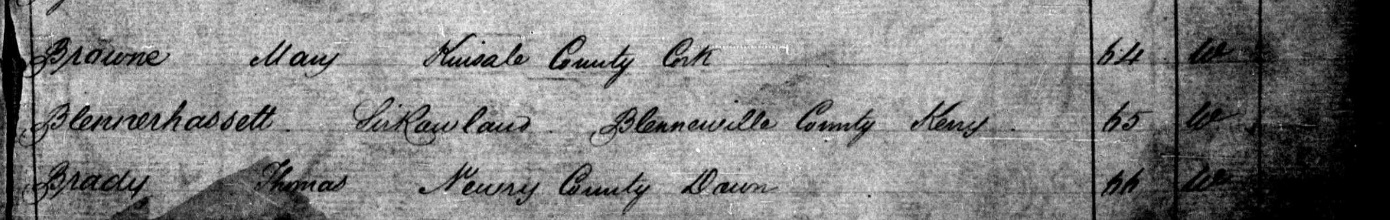 Browne Mary Kinsale County Cork 64 W
Blennerhassett Sir Rowland Blennerville County Kerry 65 W
Brady Thomas Newry County Down 66 W